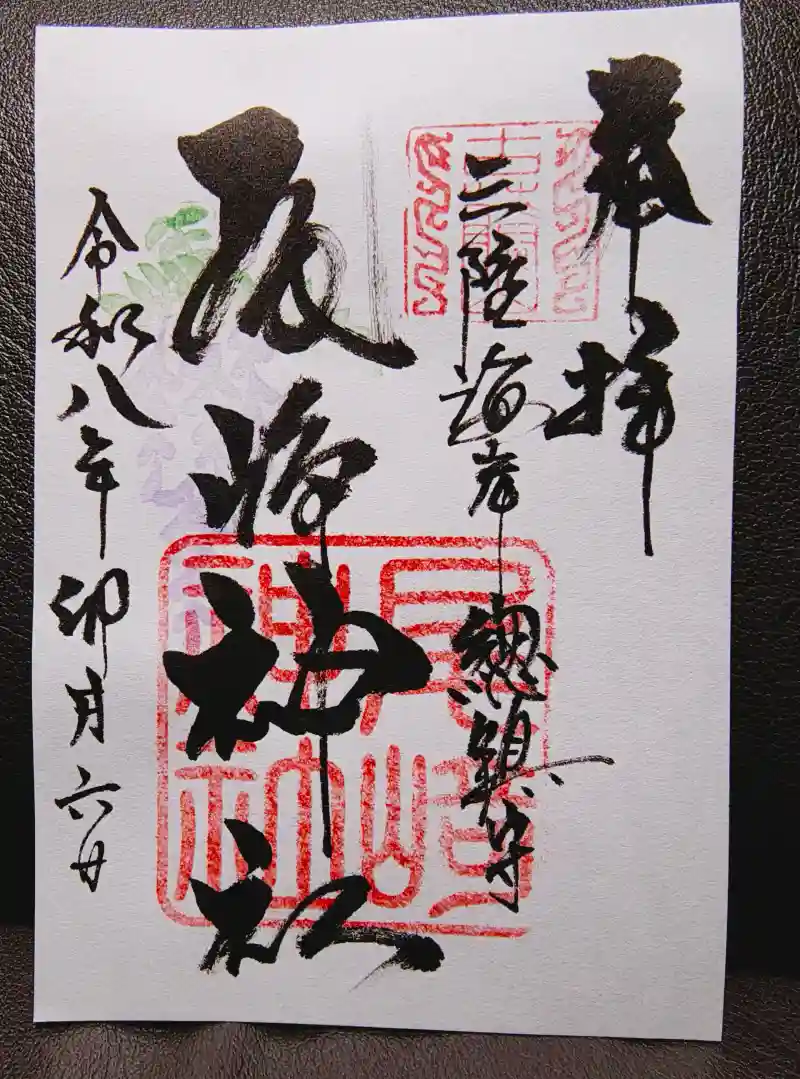 奉拝
三陸海岸總鎮守
尾崎神社
令和八年卯月六日
尾崎
神社